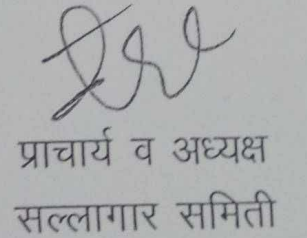 प्राचार्य व अध्यक्ष
सल्लागार समिती